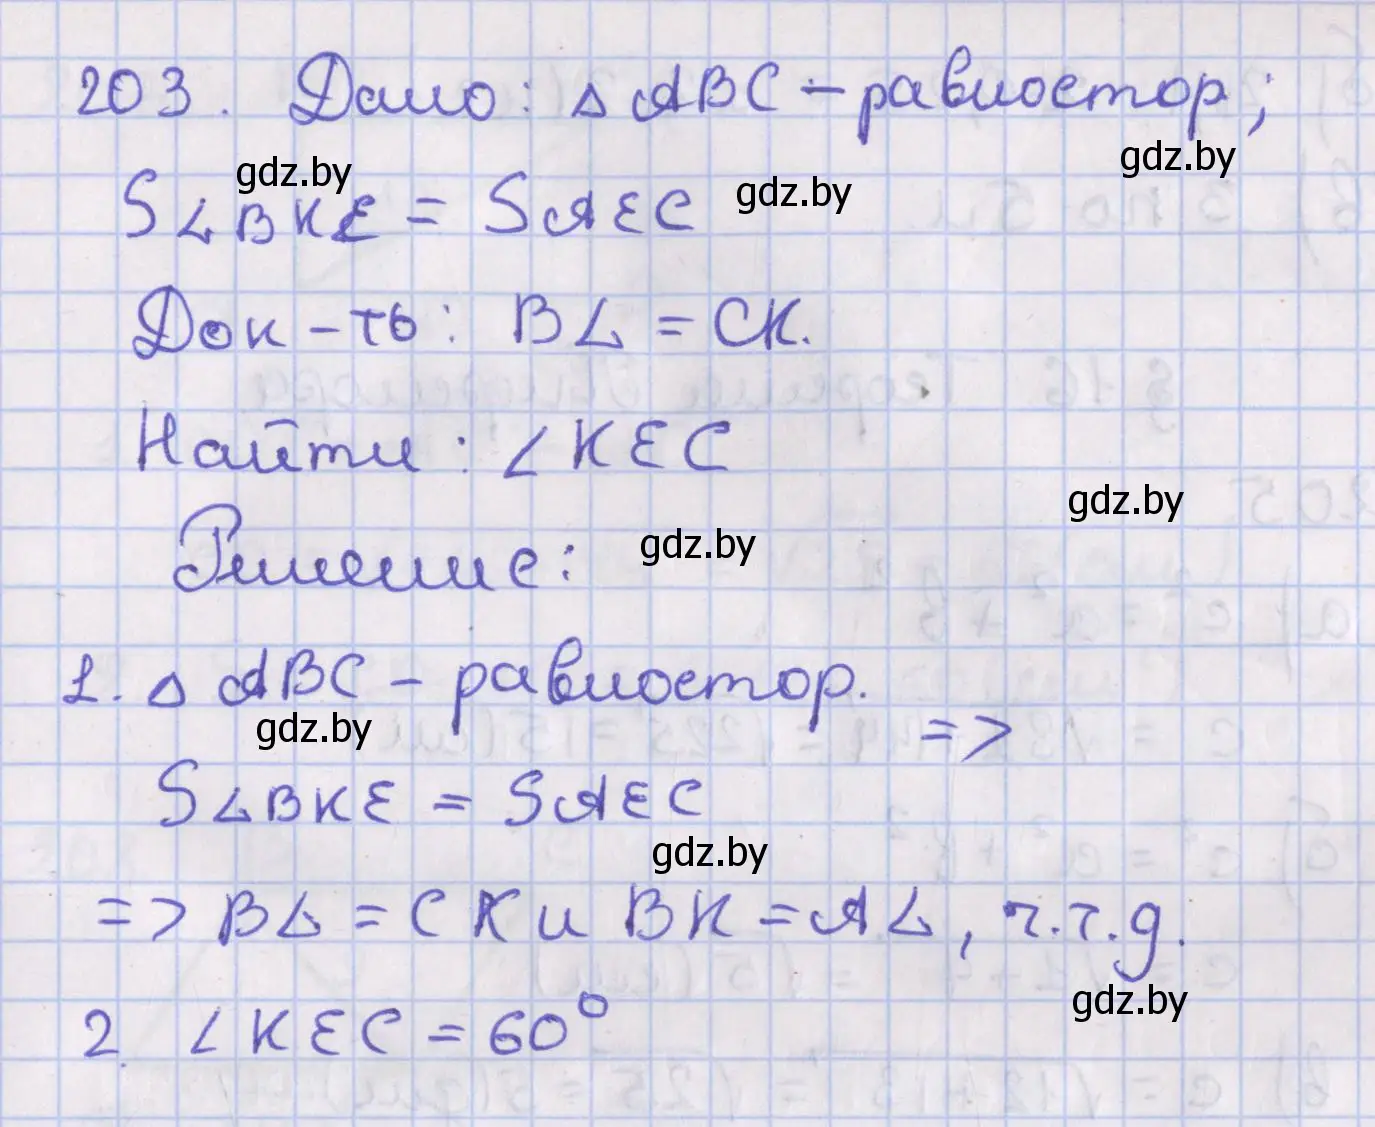 203. Дано: △ ABC – равностор;
gdz.by
gdz.by
gdz.by
S LBKE = S AEC
Док-ть: BL = CK.
Найти: ∠KEC
gdz.by
Решение:
gdz.by
1. △ ABC – равностор.
gdz.by
=>
S LBKE = S AEC
gdz.by
=> BL = CK и BK = AL, ч.т.д.
gdz.by
2. ∠KEC = 60°